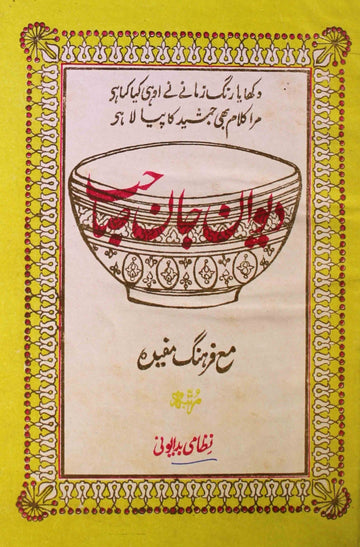 دکھایا رنگ زمانے نے اوہی کیا کیا ہو
مرا کلام بھی جمشید کا پیالا ہو
دیوان جان صاحب
مع فرہنگ مفیدہ
مرتبہ
نظامی بدایونی